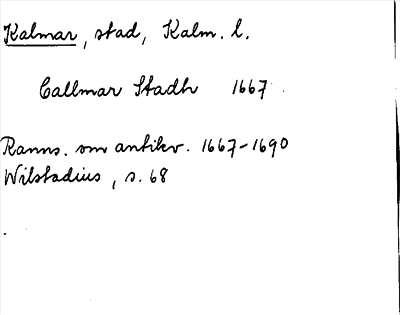 Kalmar, stad, Kalm. l.
Callmar Stadh 1667
Ranns. om antikv. 1667-1690
Wilstadius, s. 68